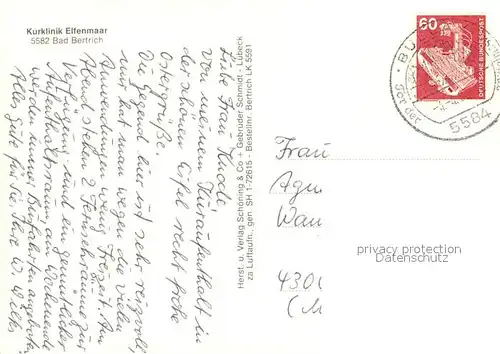 Kurklinik Elfenmaar
5582 Bad Bertrich
Liebe Frau Knode
Von meinem Kuraufenthalt in
der schönen Eifel recht frohe
Ostergrüße.
Die Gegend hier ist sehr reizvoll,
nur hat man wegen die vielen
Anwendungen wenig Freizeit. Am
Abend stehen 2 Fernsehräume zur
Verfügung und ein gemütlicher
Aufenthaltsraum, am Wochenende
werden immer Busfahrten angeboten.
Alles Gute für Sie Ihre
Herst. u. Verlag Schöning & Co + Gebrüder Schmidt - Lübeck
za Luftaufn., gen. SH 1-72615 - Bestellnr. Bertrich LK 5591
60
DEUTSCHE BUNDESPOST
5584
an der
Frau
Agn
Wan
430
(M
privacy protection
Datenschutz